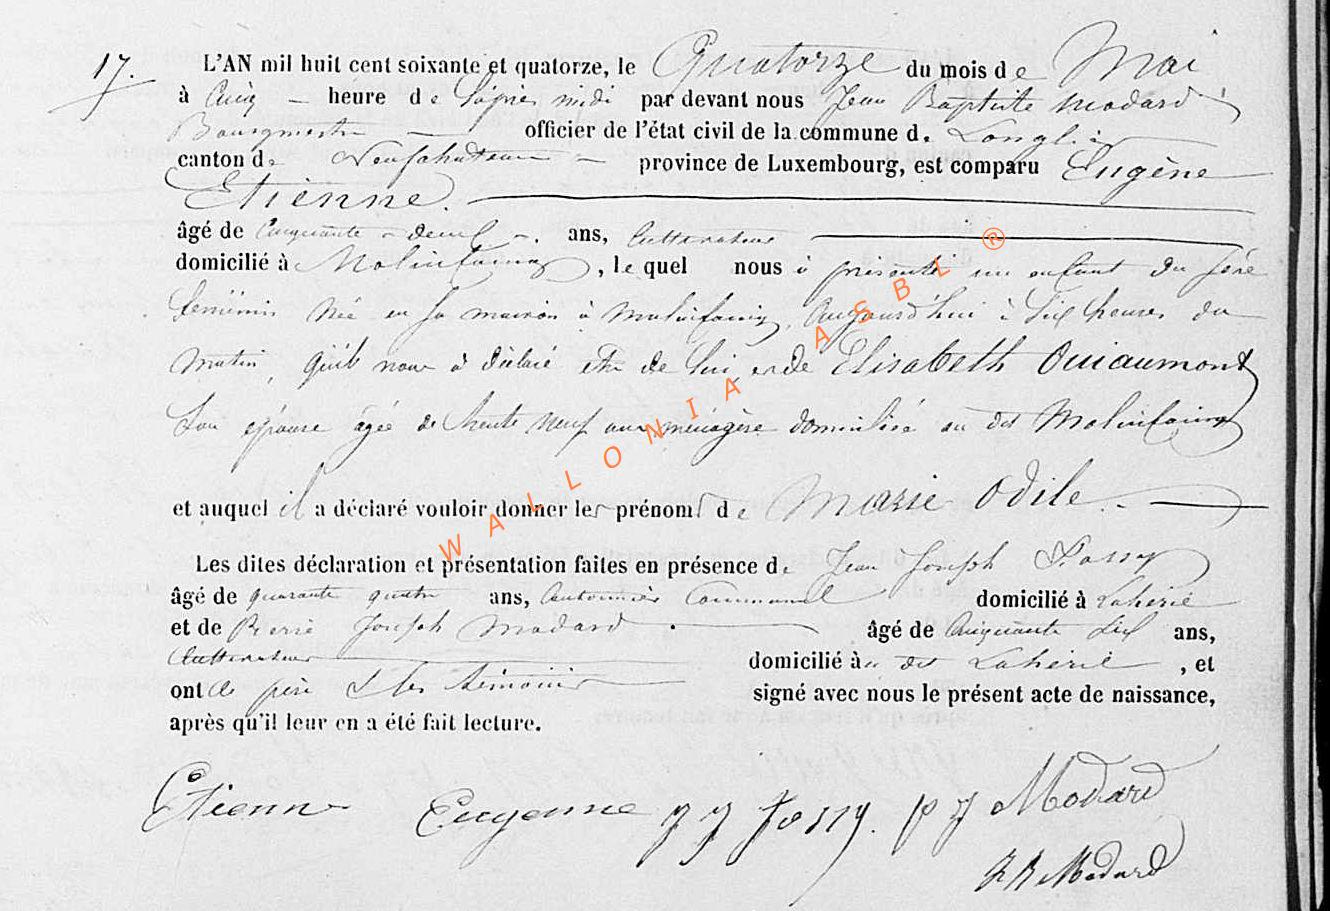 17. L'AN mil huit cent soixante et quatorze, le Quatorze du mois de Mai
à Cinq heure de l'après midi par devant nous Jean Baptiste Modard
Bourgmestre officier de l'état civil de la commune d. Longlier
canton de Neufchateau province de Luxembourg, est comparu Eugène
Etienne.
âgé de Cinquante deux ans, Cultivateur
domicilié à Molinfaing, lequel nous à présenté un enfant du sexe
féminin née en sa maison à Molinfaing, Aujourd'hui à Six heures du
matin, qu'il nous à déclaré être de lui, et de Elisabeth Ouiaumont
Son épouse âgée de trente neuf ans ménagère domiciliée au dit Molinfaing
et auquel il a déclaré vouloir donner les prénoms de Marie Odile.
Les dites déclaration et présentation faites en présence de Jean Joseph Fossy
âgé de quarante quatre ans, Cantonnier Communal domicilié à Lahérie
et de Pierre Joseph Modard âgé de Cinquante Six ans,
Cultivateur domicilié au dit Lahérie, et
ont le père & les témoins signé avec nous le présent acte de naissance,
après qu'il leur en a été fait lecture.
Etienne Eugenne J J Fossy. P J Modard
J B Modard
WALLONIA ASBL ®